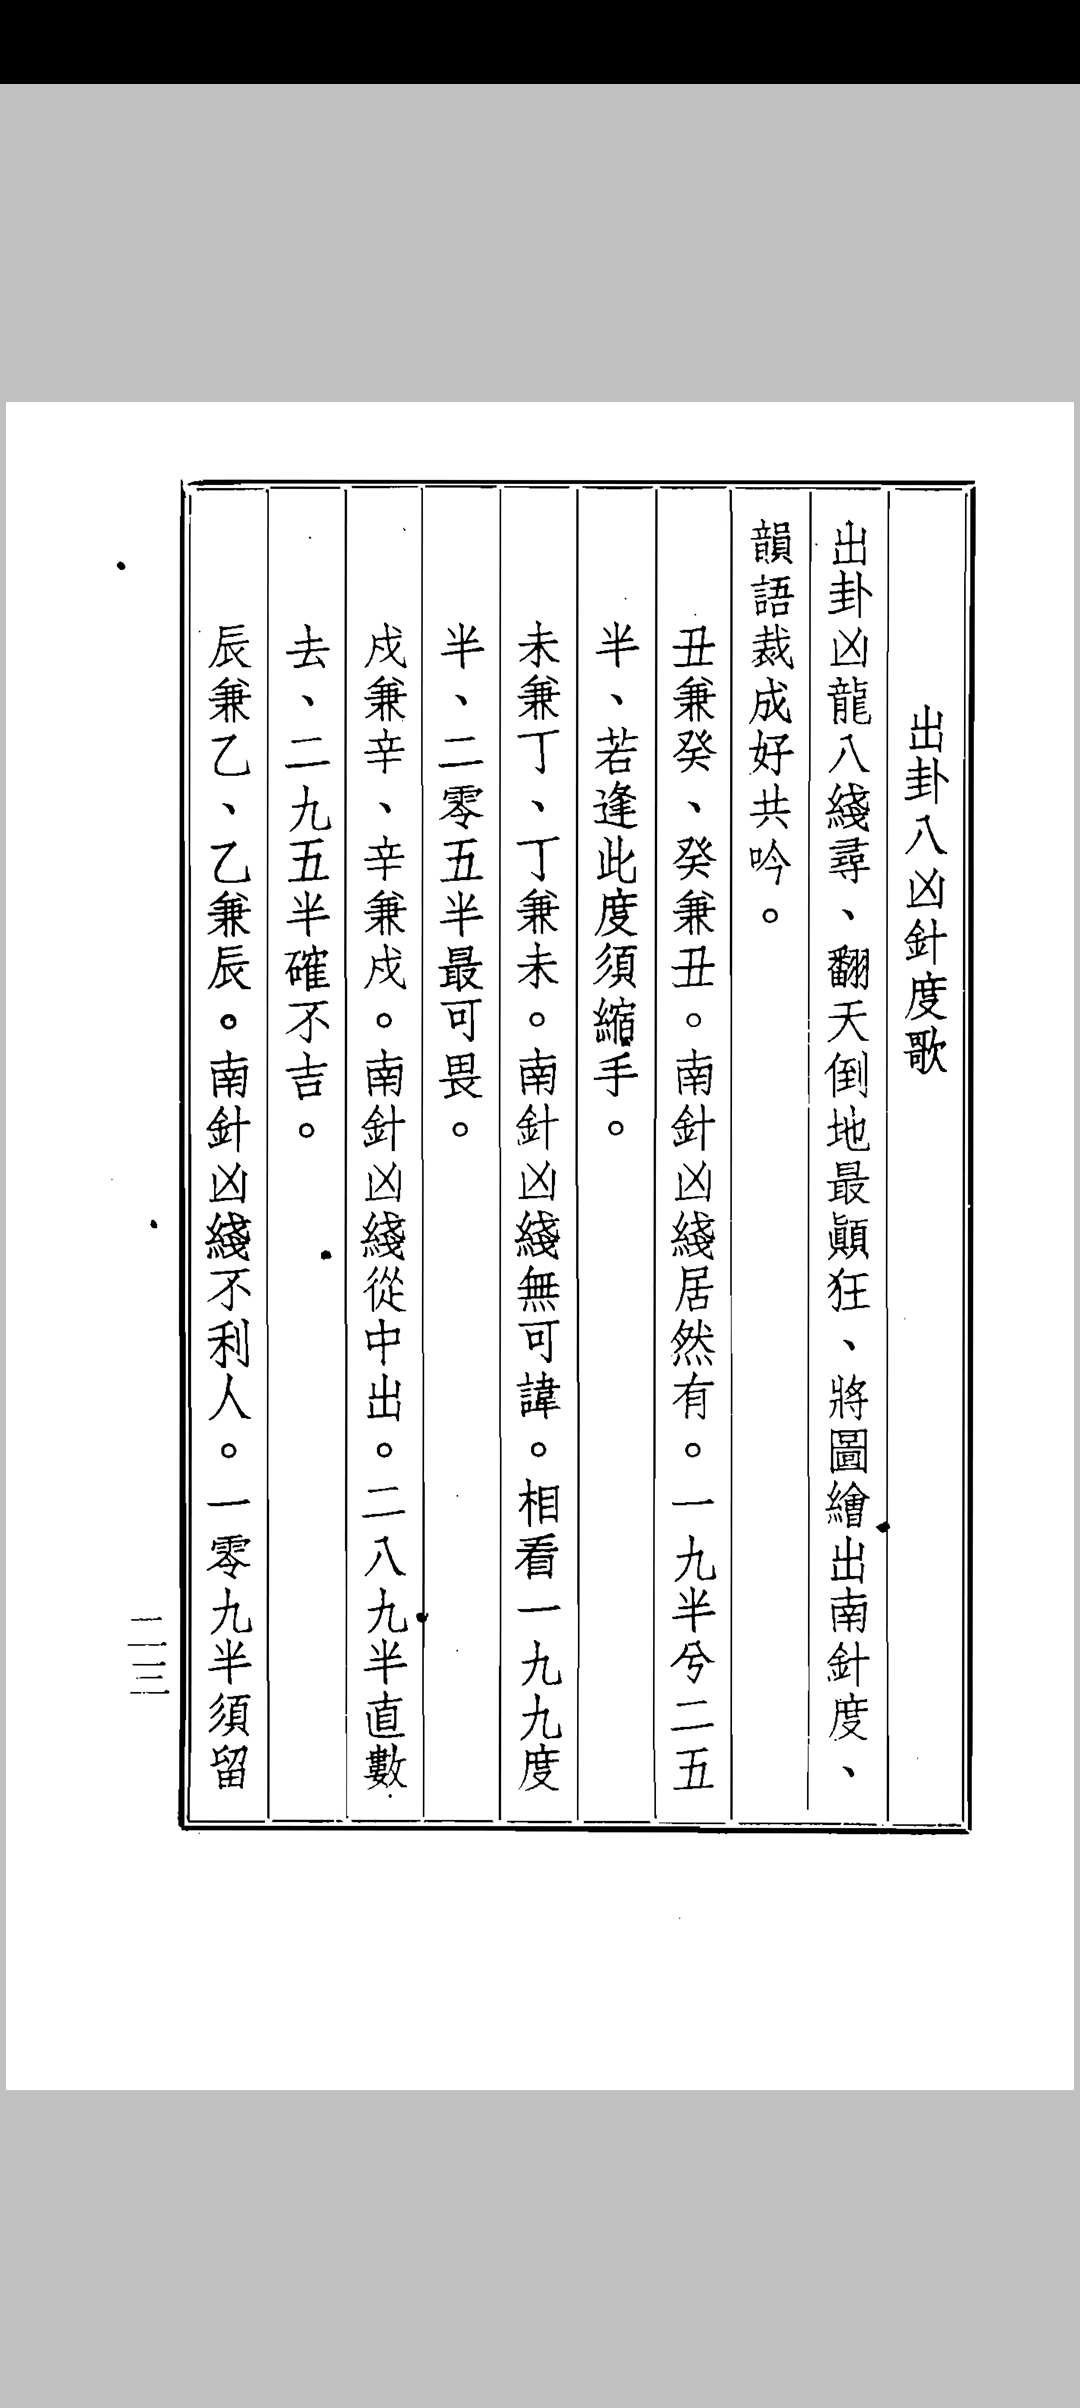 出卦八凶針度歌
出卦凶龍八綫尋、翻天倒地最顛狂、將圖繪出南針度、
韻語裁成好共吟。
丑兼癸、癸兼丑。南針凶綫居然有。一九半兮二五
半、若逢此度須縮手。
未兼丁、丁兼未。南針凶綫無可諱。相看一九九度
半、二零五半最可畏。
戍兼辛、辛兼戍。南針凶綫從中出。二八九半直數
去、二九五半確不吉。
辰兼乙、乙兼辰。南針凶綫不利人。一零九半須留
二三